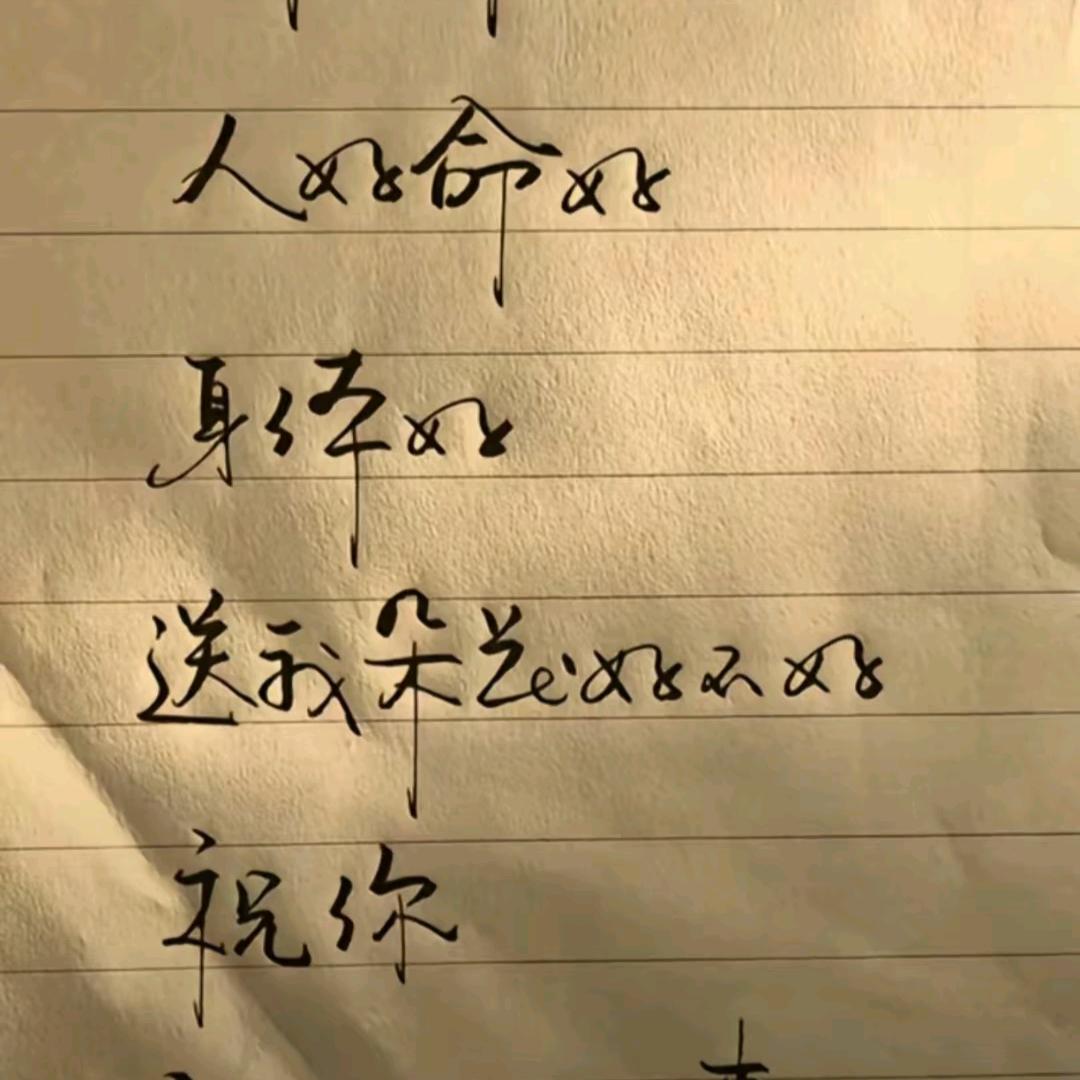 人好命好
身体好
送我朵花好不好
祝你